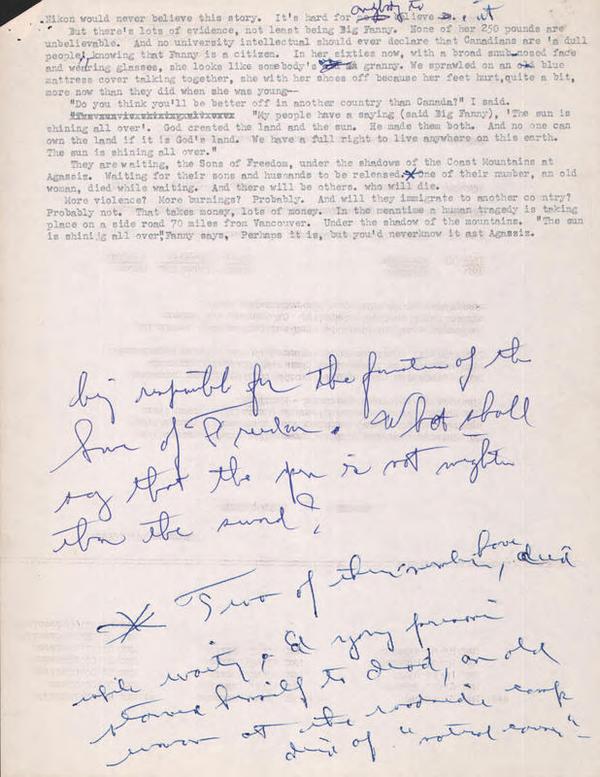 Nikon would never believe this story. It's hard for anybody to believe it
But there's lots of evidence, not least being Big Fanny. None of her 250 pounds are
unbelievable. And no university intellectual should ever declare that Canadians are a dull
people, knowing that Fanny is a citizen. In her sixties now, with a broad snub-nosed face
and wearing glasses, she looks like somebody's granny. We sprawled on an old blue
mattress cover talking together, she with her shoes off because her feet hurt, quite a bit,
more now than they did when she was young--
"Do you think you'll be better off in another country than Canada?" I said.
"My people have a saying (said Big Fanny), 'The sun is
shining all over'. God created the land and the sun. He made them both. And no one can
own the land if it is God's land. We have a full right to live anywhere on this earth.
The sun is shining all over."
They are waiting, the Sons of Freedom, under the shadows of the Coast Mountains at
Agassiz. Waiting for their sons and husbands to be released. One of their number, an old
woman, died while waiting. And there will be others. who will die.
More violence? More burnings? Probably. And will they immigrate to another country?
Probably not. That takes money, lots of money. In the meantime a human tragedy is taking
place on a side road 70 miles from Vancouver. Under the shadow of the mountains. "The sun
is shining all over," Fanny says, Perhaps it is, but you'd neverknow it ast Agassiz.
being responsible for the formation of the
Sons of Freedom. What shall
say that the pen is not mightier
than the sword?
* Two of their number have died
while waiting. A young prisoner
starved himself to dead, an old
woman at the roadside camp
died of "natural causes"-